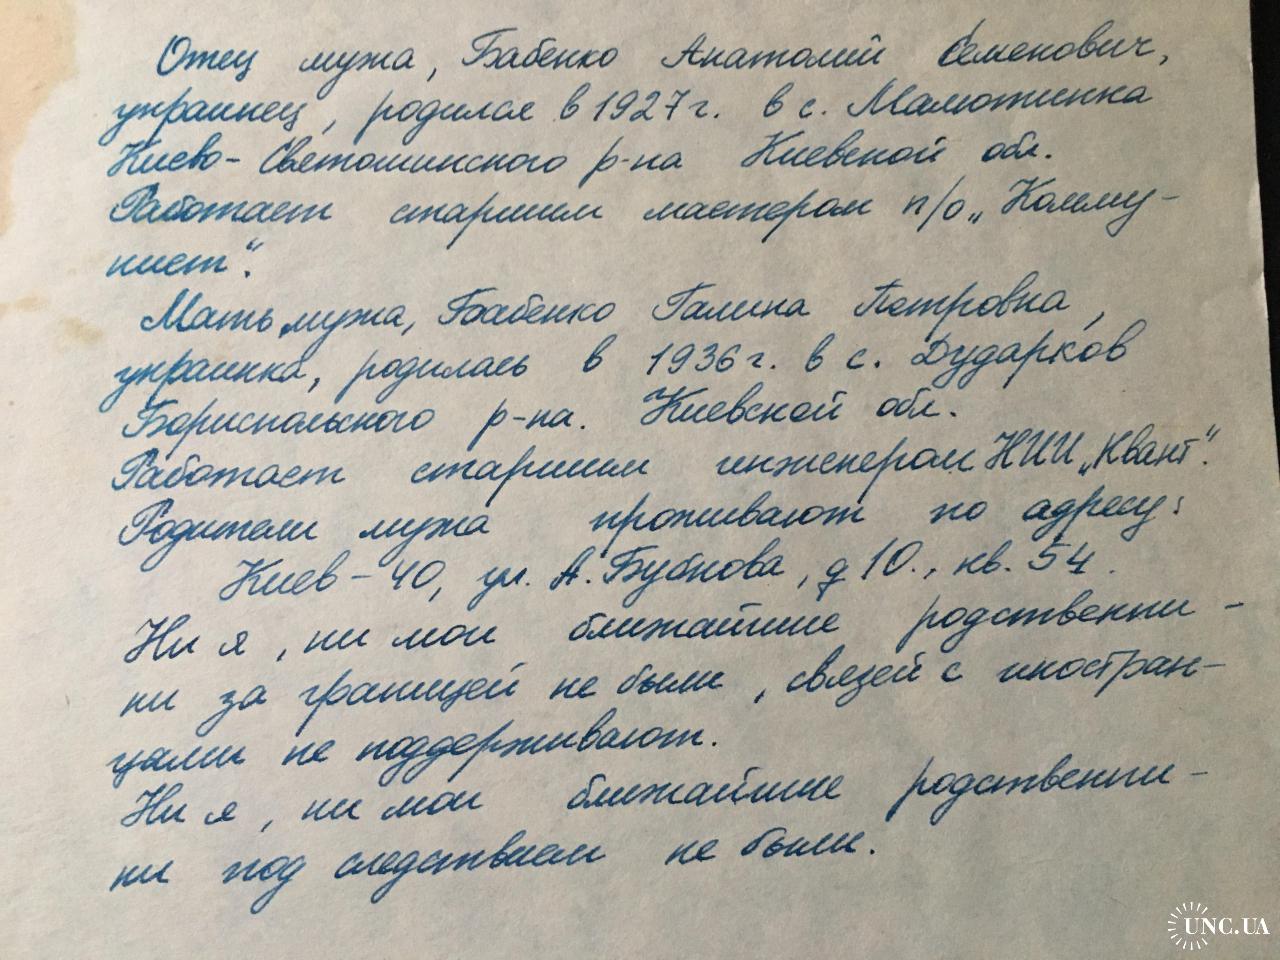 Отец мужа, Бабенко Анатолий Семенович,
украинец, родился в 1927 г. в с. Малютинка
Киево-Святошинского р-на Киевской обл.
Работает старшим мастером п/о „Комму-
нист“.
Мать мужа, Бабенко Галина Петровна,
украинка, родилась в 1936 г. в с. Дударков
Бориспольского р-на. Киевской обл.
Работает старшим инженером НИИ „Квант“.
Родители мужа проживают по адресу:
Киев-40, ул. А. Бубнова, д 10., кв. 54.
Ни я, ни мои ближайшие родственни-
ки за границей не были, связей с иностран-
цами не поддерживают.
Ни я, ни мои ближайшие родственни-
ки под следствием не были.
UNC.UA